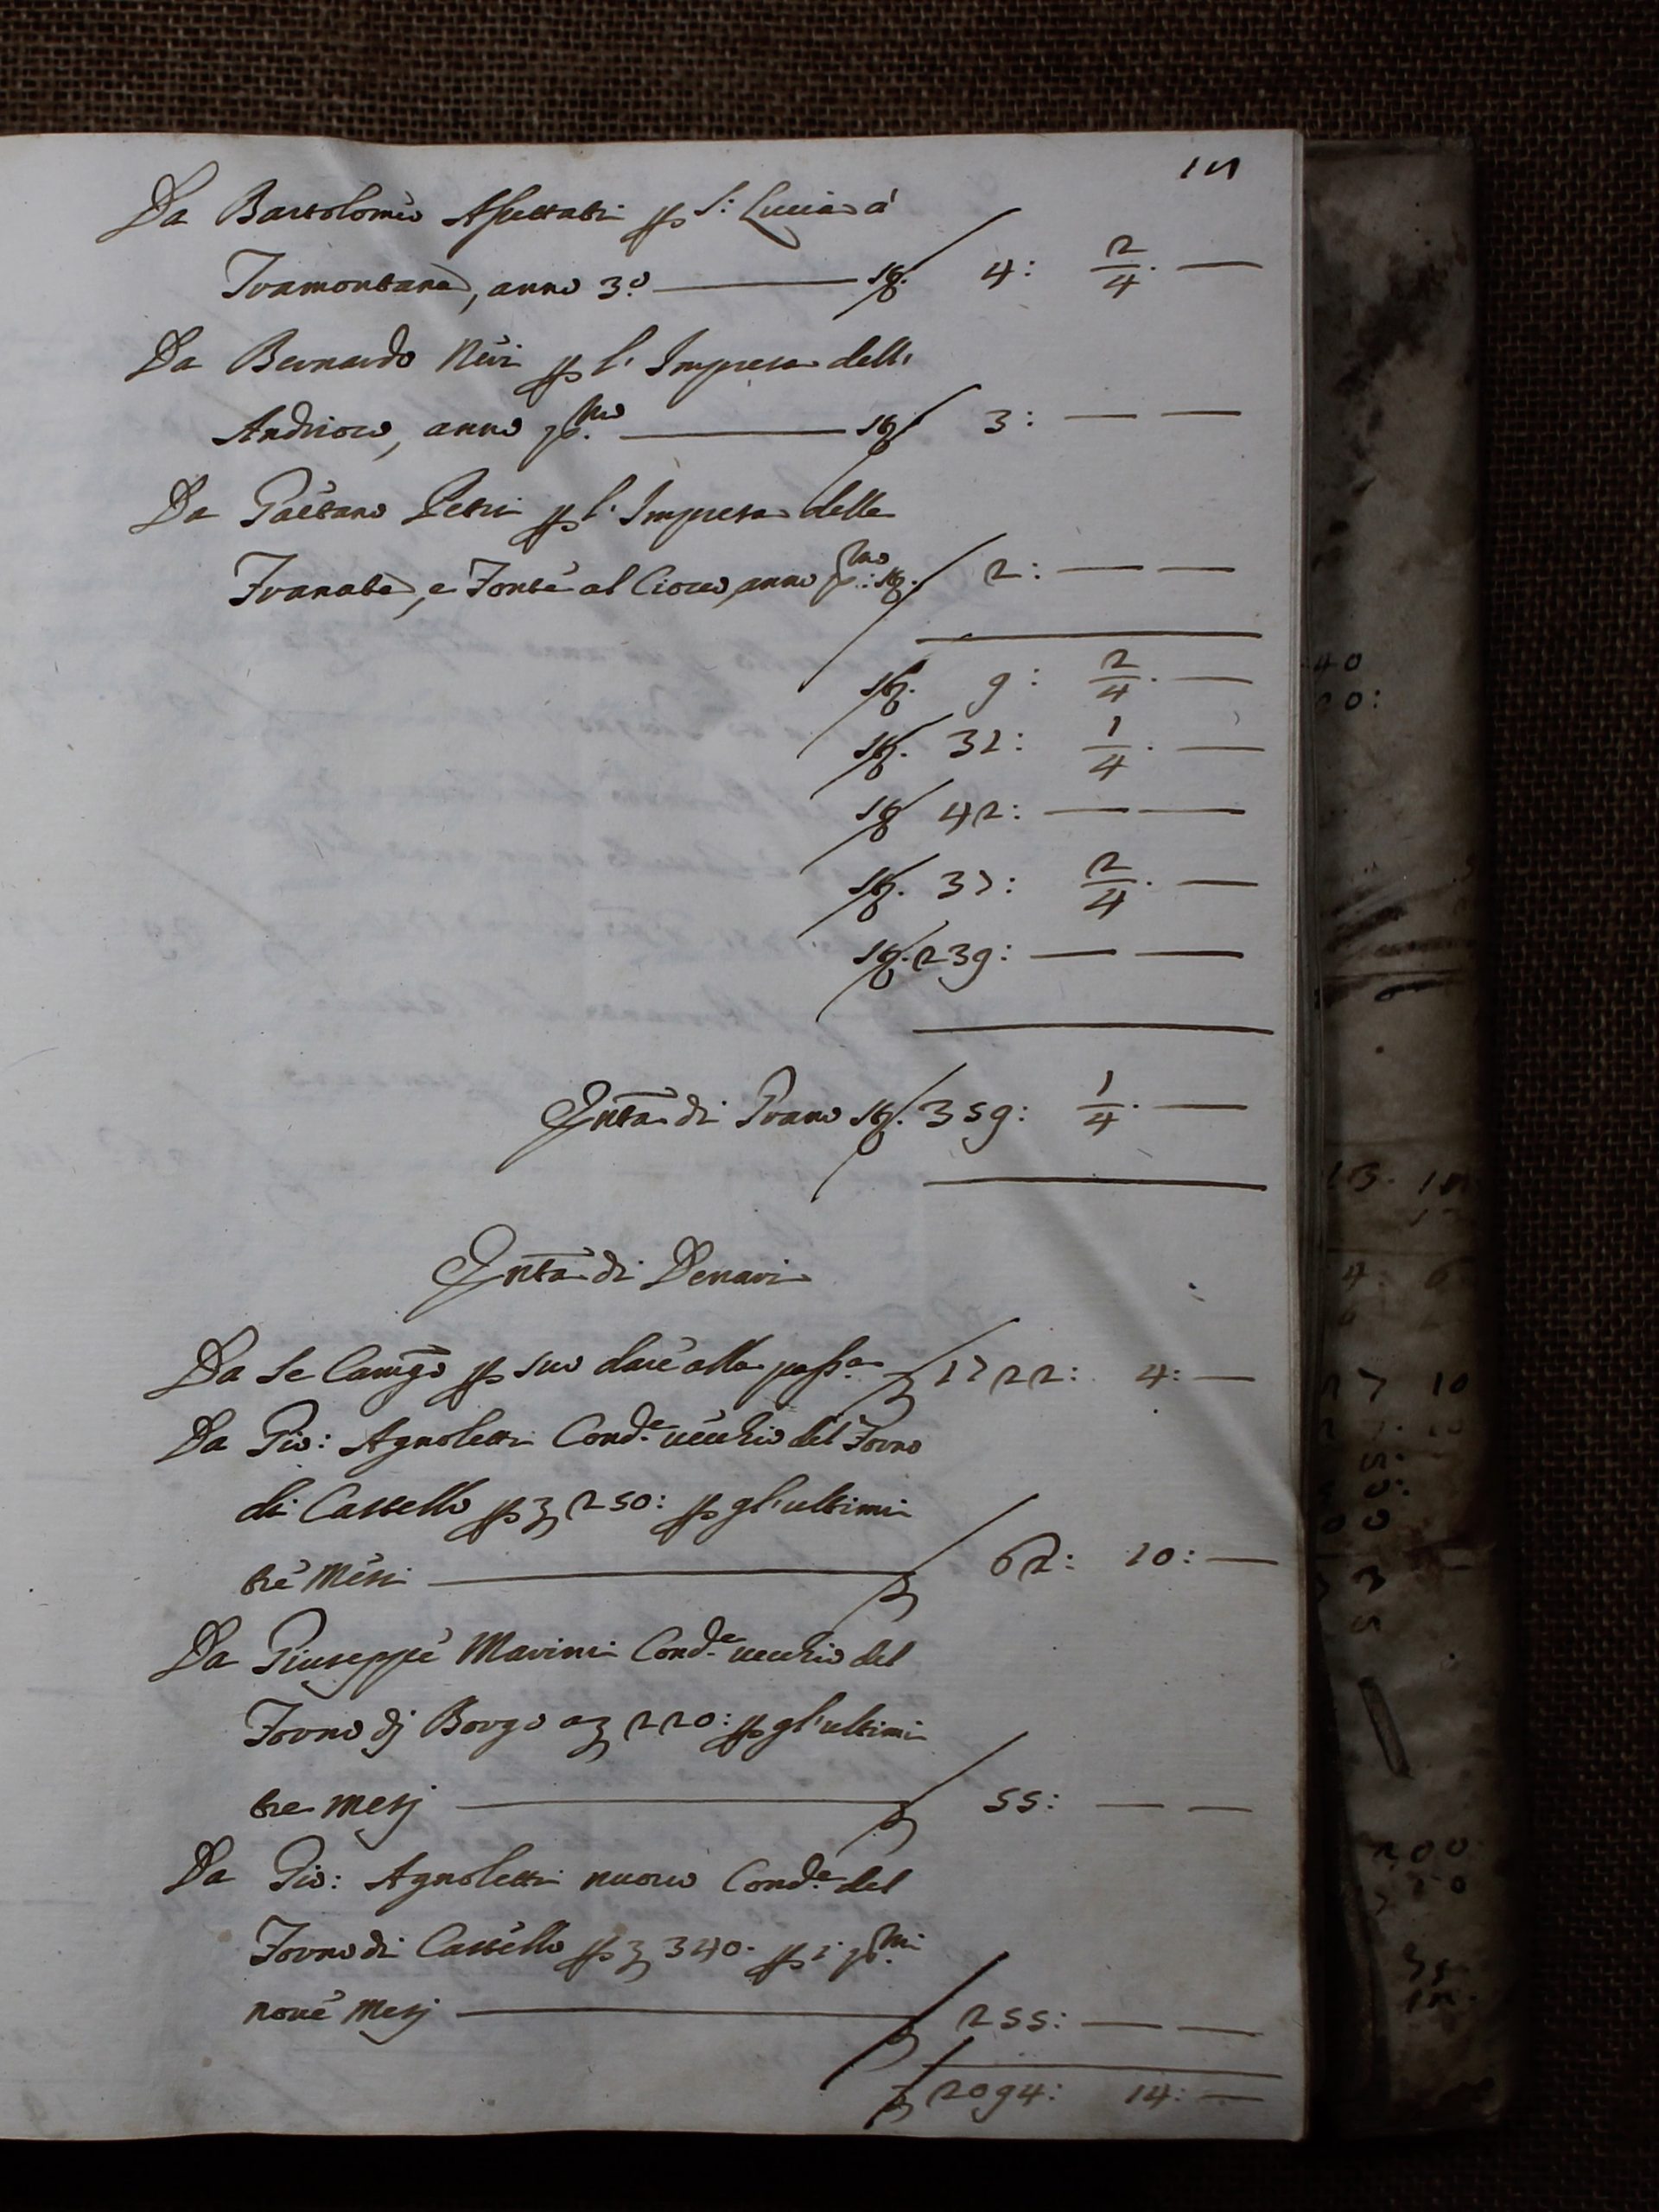 Da Bartolomeo Aspettati p S: Lucia à
Tramontana, anno 3.º st. 4: 2/4. —
Da Bernardo Neri p l' Impresa dell'
Andriolo, anno pmo st. 3: — —
Da Gaetano Petri p l' Impresa della
Granata, e Fonte al Cioco, anno pmo: st. 2: — —
st. 9: 2/4. —
st. 31: 1/4. —
st. 42: — —
st. 37: 2/4. —
st. 239: — —
Entta di Grano st. 359: 1/4. —
Entta di Denari
Da Se Camgo p suo dare alla passa £ 1722: 4: —
Da Gio: Agnoletti Conde vecchio del Forno
di Castello p £ 250: p gl'ultimi
trè Mesi £ 62: 10: —
Da Giuseppe Marini Conde vecchio del
Forno dj Borgo a £ 220: p gl'ultimi
tre mesj £ 55: — —
Da Gio: Agnoletti nuovo Conde del
Forno di Castello p £ 340. p i pmi
nove mesj £ 255: — —
£ 2094: 14: —